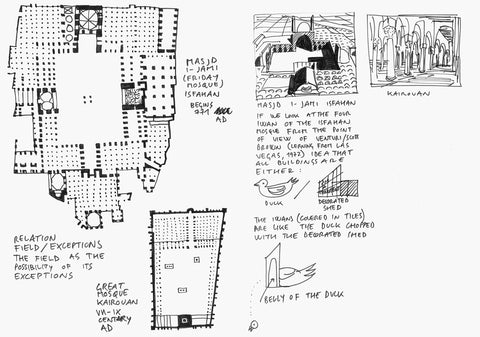 MASJD
I-JAMI
(FRIDAY
MOSQUE)
ISFAHAN
BEGINS
771
AD
RELATION
FIELD/EXCEPTIONS
THE FIELD AS THE
POSSIBILITY OF ITS
EXCEPTIONS
GREAT
MOSQUE
KAIROUAN
VII-IX
CENTURY
AD
MASJD I-JAMI ISFAHAN
KAIROUAN
IF WE LOOK AT THE FOUR
IWAN OF THE ISFAHAN
MOSQUE FROM THE POINT
OF VIEW OF VENTURI/SCOTT
BROWN (LEARNING FROM LAS
VEGAS, 1972) IDEA THAT
ALL BUILDINGS ARE
EITHER:
DUCK
DECORATED
SHED
THE IWANS (COVERED IN TILES)
ARE LIKE THE DUCK CHOPPED
WITH THE DECORATED SHED
BELLY OF THE DUCK